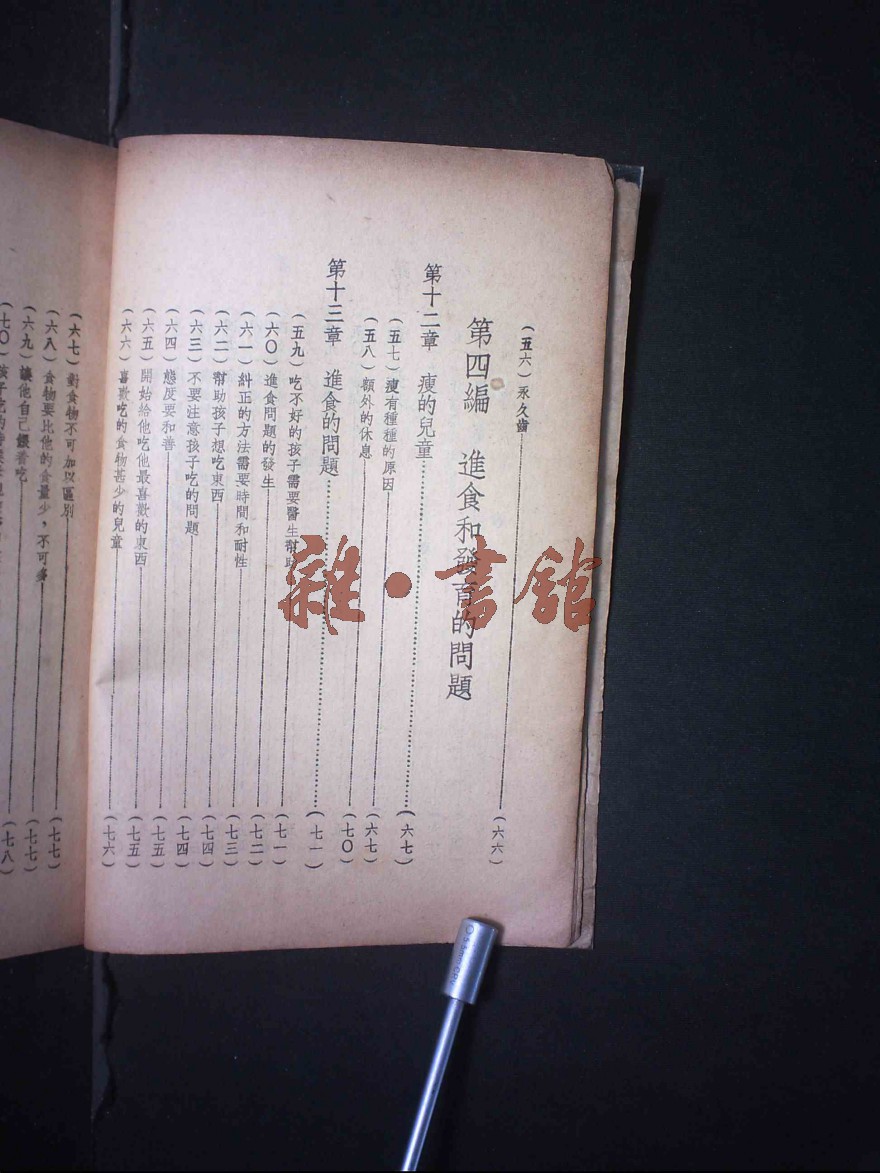 (五六) 永久齒 (六六)
第四編 進食和發育的問題
第十二章 瘦的兒童 (六七)
(五七) 瘦有種種的原因 (六七)
(五八) 額外的休息 (七〇)
第十三章 進食的問題 (七一)
(五九) 吃不好的孩子需要醫生幇助 (七一)
(六〇) 進食問題的發生 (七二)
(六一) 糾正的方法需要時間和耐性 (七三)
(六二) 幇助孩子想吃東西 (七四)
(六三) 不要注意孩子吃的問題 (七四)
(六四) 態度要和善 (七五)
(六五) 開始給他吃他最喜歡的東西 (七五)
(六六) 喜歡吃的食物甚少的兒童 (七六)
(六七) 對食物不可加以區別 (七七)
(六八) 食物要比他的食量少，不可多 (七七)
(六九) 讓他自己餵着吃 (七八)
(七〇) 孩子吃的時候
雜·書館